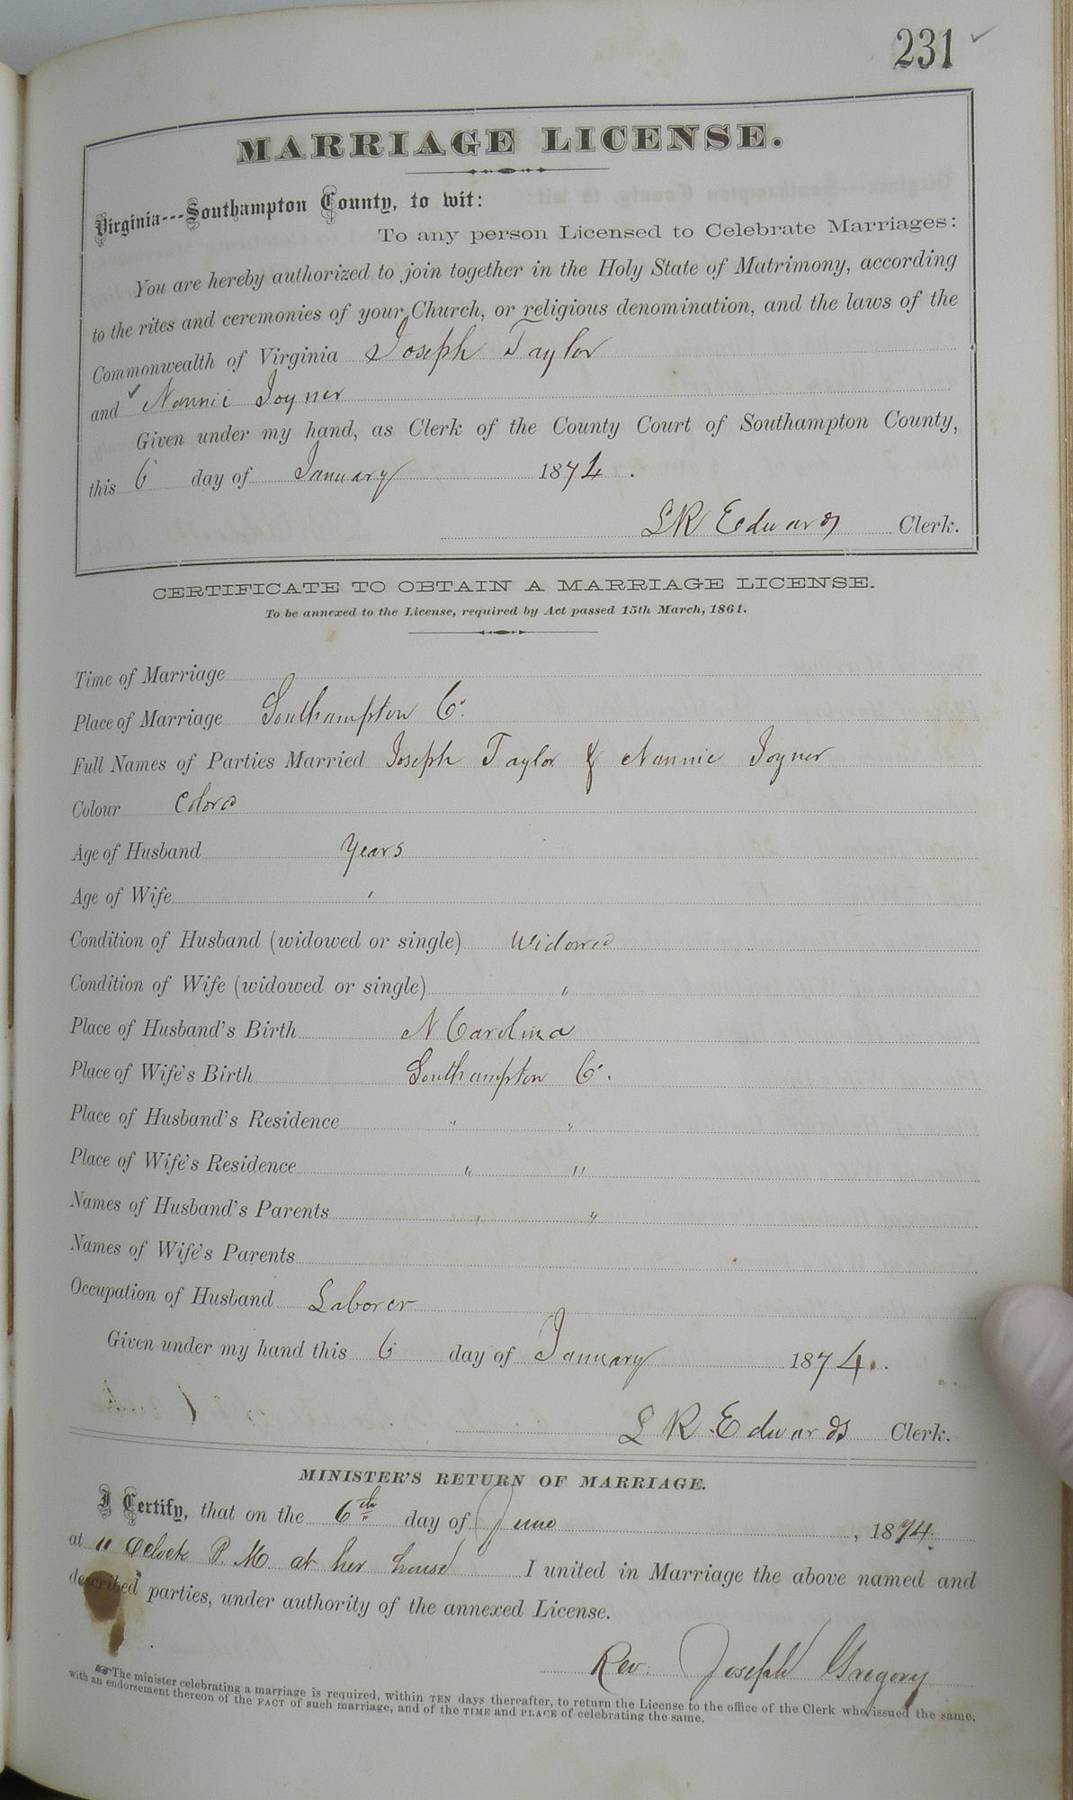 231
MARRIAGE LICENSE.
Virginia---Southampton County, to wit:
To any person Licensed to Celebrate Marriages:
You are hereby authorized to join together in the Holy State of Matrimony, according
to the rites and ceremonies of your Church, or religious denomination, and the laws of the
Commonwealth of Virginia Joseph Taylor
and Nannie Joyner
Given under my hand, as Clerk of the County Court of Southampton County,
this 6 day of January 1874.
L R Edwards Clerk.
CERTIFICATE TO OBTAIN A MARRIAGE LICENSE.
To be annexed to the License, required by Act passed 15th March, 1861.
Time of Marriage
Place of Marriage Southampton Co.
Full Names of Parties Married Joseph Taylor & Nannie Joyner
Colour Colored
Age of Husband Years
Age of Wife "
Condition of Husband (widowed or single) Widowed
Condition of Wife (widowed or single) "
Place of Husband's Birth N Carolina
Place of Wife's Birth Southampton Co.
Place of Husband's Residence " "
Place of Wife's Residence " "
Names of Husband's Parents " "
Names of Wife's Parents
Occupation of Husband Laborer
Given under my hand this 6 day of January 1874.
L R Edwards Clerk.
MINISTER'S RETURN OF MARRIAGE.
I Certify, that on the 6th day of June, 1874.
at 11 Oclock P. M. at her house I united in Marriage the above named and
described parties, under authority of the annexed License.
Rev. Joseph Gregory
The minister celebrating a marriage is required, within TEN days thereafter, to return the License to the office of the Clerk who issued the same,
with an endorsement thereon of the FACT of such marriage, and of the TIME and PLACE of celebrating the same.